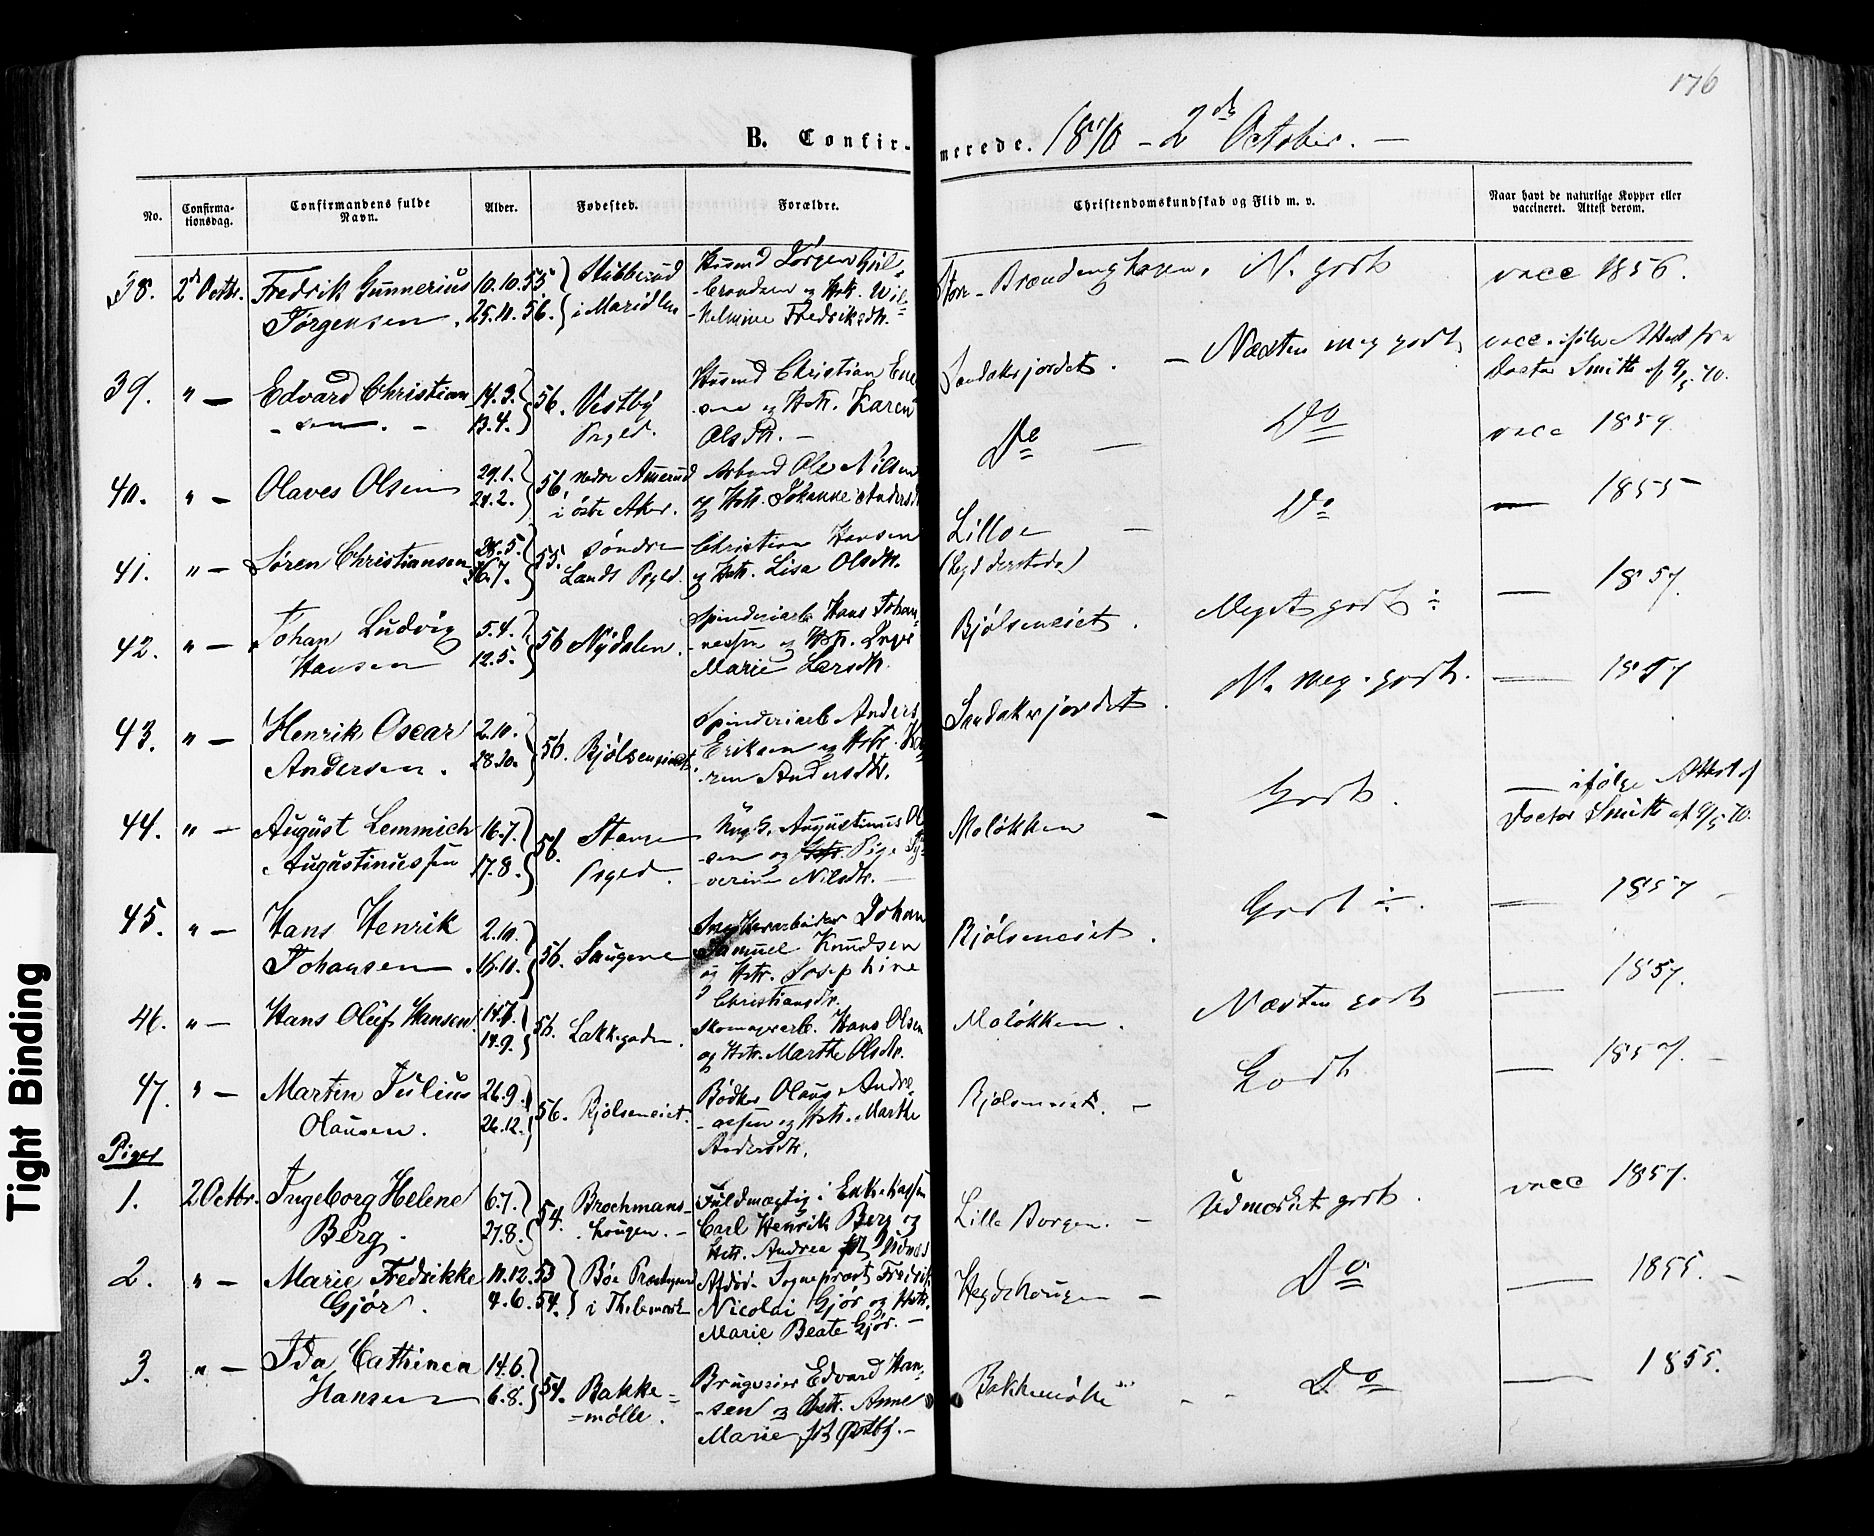 176
B. Confir-
merede. 1870 - 2de October. -
No.
Confirma-
tionsdag.
Confirmandens fulde
Navn.
Alder.
Fødested.
Forældre.
Christendomskundskab og Flid m. v.
Naar havt de naturlige Kopper eller
vaccineret. Attest derom.
38. 2d Octbr. Fredrik Gunnerius
Jørgensen.
10.10.55
25.11.56.
Stubberud
i Maridlen
Husmd Jørgen Gul-
brandsen og Hstr. Wil-
helmine Fredriksdtr.
N. godt
vacc 1856.
39. " — Edvard Christian
- sen. -
14.3.
13.4.
56. Vestby
Prgld.
Husmd Christian
og Hstr. Karen
Olsdtr. —
Sandakerjordet. — Næsten meg godt
vacc. ifølge Attest fra
Doctor Smith af 9/5 70.
40. " — Olaves Olsen
29.1.
24.2.
56. nedre Amerud
i østre Aker.
Arbmd Ole Nilsen
og Hstr. Johanne Andersd
Do —
Do
vacc 1859.
41. " — Søren Christiansen
28.5.
16.7.
55. søndre
Lands Prgld.
Christian Hansen
og Hstr. Lisa Olsdtr.
Lilloe —
Do
— 1855
42. " — Johan Ludvig
Hansen
5.4.
12.5.
56 Nydalen.
Spinderiarb. Hans Johan-
nessen og Hstr. Inger
Marie Larsdtr.
Bjølseneiet.
Meget godt ÷
— 1857.
43. " — Henrik Oscar
Andersen.
2.10.
28.10.
56. Bjølseneiet.
Spinderiarb Anders
Eriksen og Hstr. Ka-
ren Andersdtr.
Sandakerjordet.
N. meg. godt.
— 1857
44. " — August Lemmich
Augustinussen
16.7.
17.8.
56. Stange
Prgld.
Ung. S. Augustinus Ol-
sen og Hstr. Pige Sy-
verine Nilsdtr. —
Moløkken —
Godt.
— ifølge Attest af
Doctor Smith af 9/5 70.
45. " — Hans Henrik
Johansen.
2.10.
16.11.
56. Saugene
Johan
Samuel Knudsen
og Hstr. Josephine
Christiansdtr.
Bjølseneiet.
Godt ÷.
— 1857 -
46. " — Hans Oluf Hansen.
14.7.
14.9.
56. Lakkegaden.
Skomagerarb. Hans Olsen
og Hstr. Marthe Olsdtr.
Moløkken.
Næsten godt
— 1857.
47. " — Marten Julius
Olausen.
26.9.
26.12.
56. Bjølseneiet.
Bødker Olaus Andre-
assen og Hstr. Marthe
Andersdtr.
Bjølseneiet. —
Godt
— 1857. -
Piger
1. 2 Octbr. Ingeborg Helene
Berg.
6.7.
27.8.
54. Brochmans-
hougen. —
Fuldmægtig i Enkekassen
Carl Henrik Berg og
Hstr. Andrea
Lille Borgen. —
Udmærket godt.
vacc 1857.
2. " — Marie Fredrikke
Gjør.
11.12.53
4.6.54.
Bøe Præstegaard
i Thelemark
Afdøde Sognepræst Fredrik
Nicolai Gjør og Hstr.
Marie Beate Gjør. —
Hegdehougen —
Do
— 1855. -
3. " — Ida Cathinca
Hansen
14.6.
6.8.
54. Bakke-
=mølle.
Brugseier Edvard Han-
-sen og Hstr. Anne
Marie fdt Østby. —
Bakkemølle -
- Do
— 1855.
Tight Binding